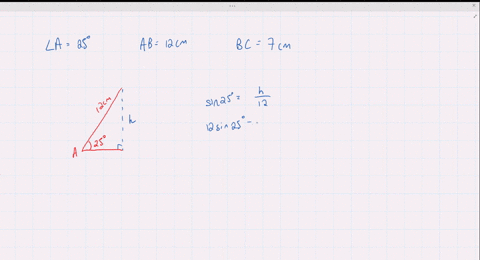 ∠A = 25°    AB = 12cm    BC = 7cm
12cm
h
A 25°
sin25° = h/12
12sin25° =